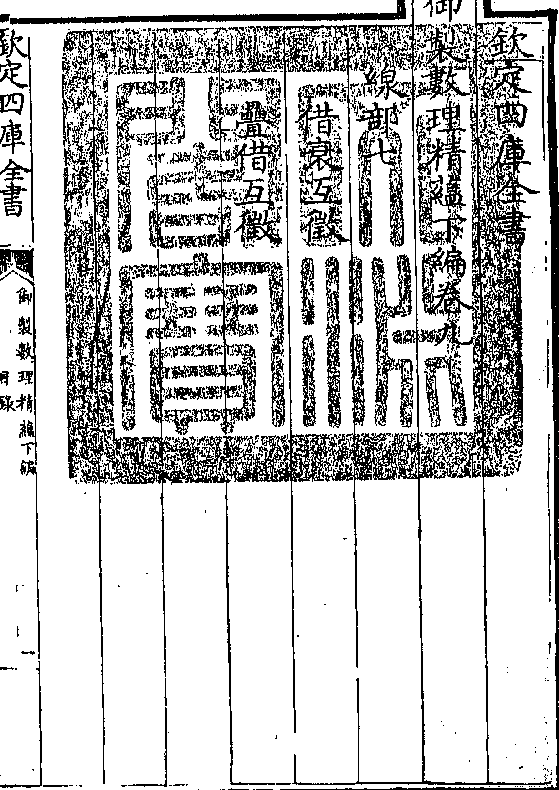 欽定四庫全書
御製數理精蘊下編卷九
線部七
借衰互徵
疊借互徵
欽定四庫全書
御製數理精蘊下編
目錄
一